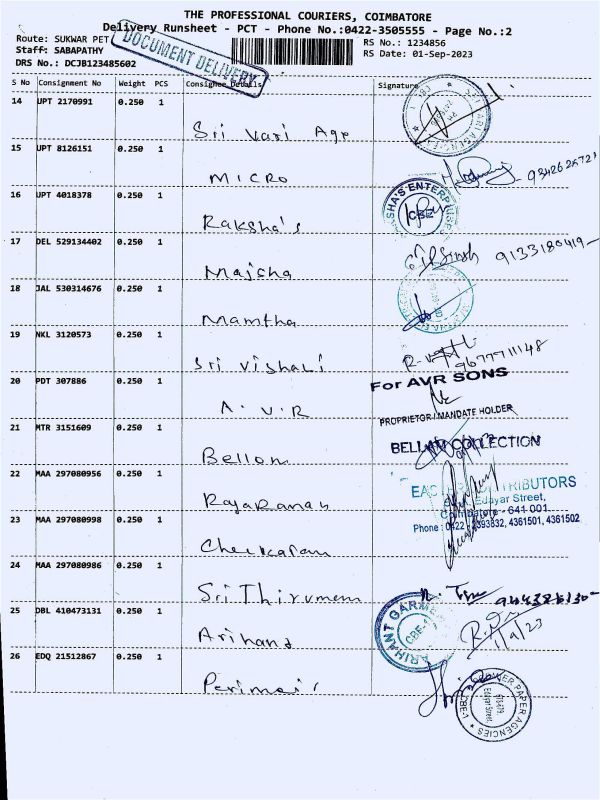 THE PROFESSIONAL COURIERS, COIMBATORE
Delivery Runsheet - PCT - Phone No.:0422-3505555 - Page No.:2
Route: SUKWAR PET
Staff: SABAPATHY
DRS No.: DCJB123485602
DOCUMENT DELIVERY
RS No.: 1234856
RS Date: 01-Sep-2023
S No Consignment No Weight PCS Consignee Details Signature
14 UPT 2170991 0.250 1
Sri Vari Age
15 UPT 8126151 0.250 1
MICRO
16 UPT 4018378 0.250 1
Raksha's
SHA'S ENTERPRISES
CBE
17 DEL 529134402 0.250 1
Majsha
9133180419
18 JAL 530314676 0.250 1
Mamtha
19 NKL 3120573 0.250 1
Sri Vishali
9677711148
20 PDT 307886 0.250 1
A.V.R
For AVR SONS
PROPRIETOR / MANDATE HOLDER
21 MTR 3151609 0.250 1
Bellon
COLLECTION
22 MAA 297080956 0.250 1
Rajaraman
TRIBUTORS
Edayar Street,
Coimbatore - 641 001.
Phone : 0422 - 2393832, 4361501, 4361502
23 MAA 297080998 0.250 1
24 MAA 297080986 0.250 1
Sri Thirumem
25 DBL 410473131 0.250 1
Arihand
ARIHANT GARMEN
CBE-1
1/9/23
26 EDQ 21512867 0.250 1
POWER PAPER AGENCIES
Edayar Street,
CBE-1